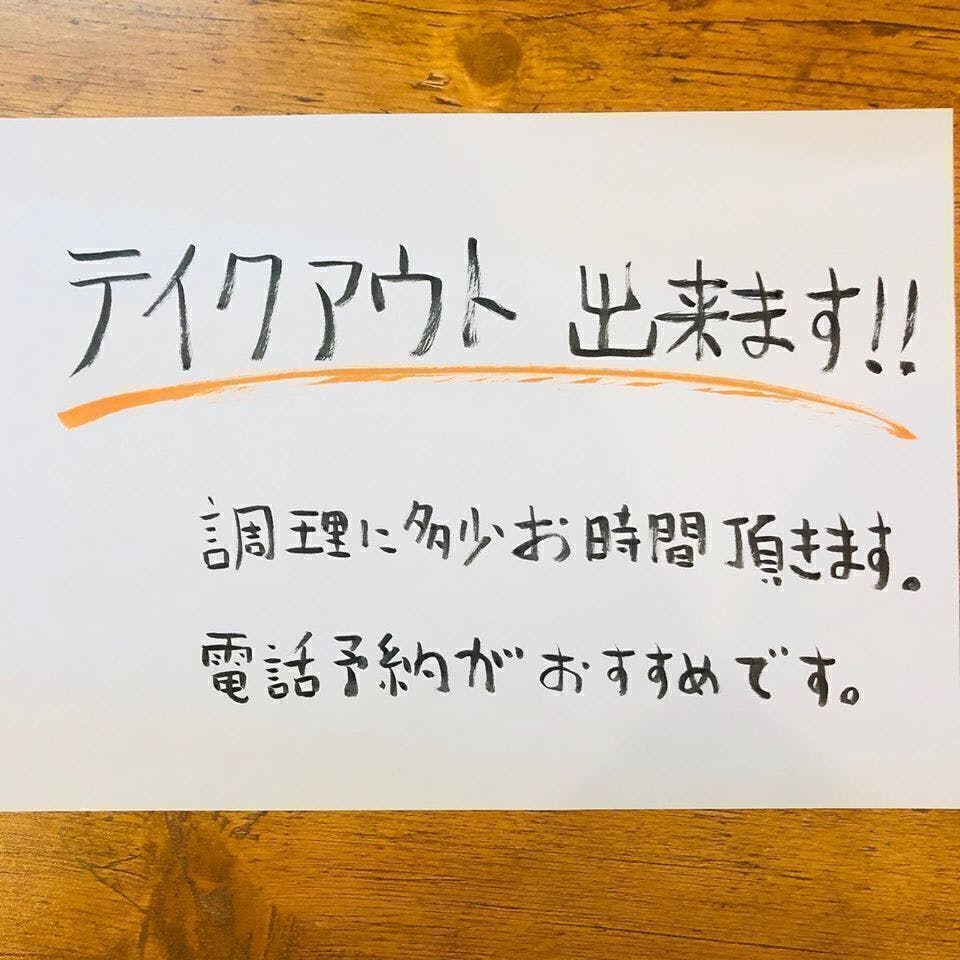 テイクアウト 出来ます!!
調理に多少お時間頂きます。
電話予約がおすすめです。